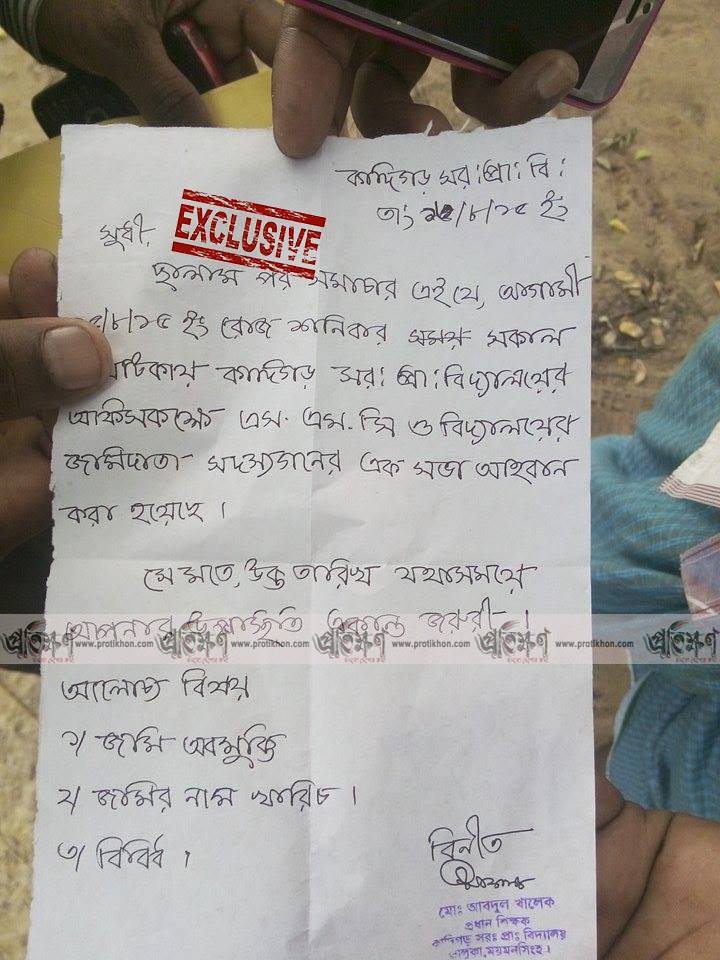 কাদিগড় সর: প্রা: বি:
তাং ১২/৮/১৫ ইং
সুধী,
EXCLUSIVE
ছালাম পর সমাচার এই যে, আগামী
/৮/১৫ ইং রোজ শনিবার সময় সকাল
ঘটিকায় কাদিগড় সর: প্রা: বিদ্যালয়ের
অফিসকক্ষে এস. এম. সি ও বিদ্যালয়ের
জমিদাতা সদস্যগনের এক সভা আহবান
করা হয়েছে ।
সে মতে, উক্ত তারিখ যথাসময়ে
আপনার উপস্থিতি একান্ত জরুরী ।
প্রতিক্ষণ www.protikhon.com প্রতিক্ষণ www.protikhon.com প্রতিক্ষণ www.protikhon.com প্রতিক্ষণ www.protikhon.com প্রতিক্ষণ
আলোচ্য বিষয়
১/ জমি অবমুক্তি
২/ জমির নাম খারিচ ।
৩/ বিবিধ ।
বিনীত
মোঃ আবদুল খালেক
প্রধান শিক্ষক
কাদিগড় সরঃ প্রাঃ বিদ্যালয়
ভালুকা, ময়মনসিংহ ।